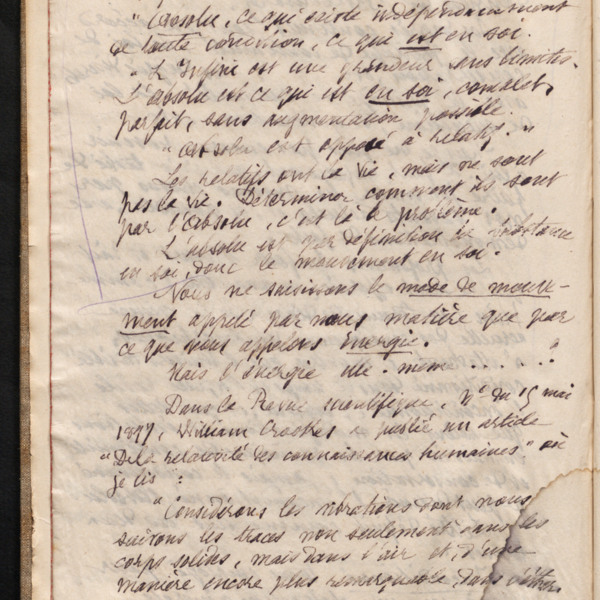 "Absolu, ce qui existe indépendamment
de toute condition, ce qui est en soi.
"L'Infini est une grandeur sans limites.
L'absolu est ce qui est en soi, complet,
parfait, sans augmentation possible.
"Absolu est opposé à relatif."
Les relatifs ont la vie, mais ne sont
pas la vie. Déterminer comment ils sont
par l'Absolu, c'est là le problème.
L'absolu est par définition la substance
en soi, donc le mouvement en soi.
Nous ne saisissons le mode de mouve-
ment appelé par nous matière que par
ce que nous appelons Énergie.
Mais l'énergie elle-même . . . . . ?
Dans la Revue scientifique, N° du 15 mai
1897, William Crookes a publié un article
"De la relativité des connaissances humaines" où
je lis :
"Considérons les vibrations dont nous
suivons les traces non seulement dans les
corps solides, mais dans l'air et, d'une
manière encore plus remarquable, dans l'éther